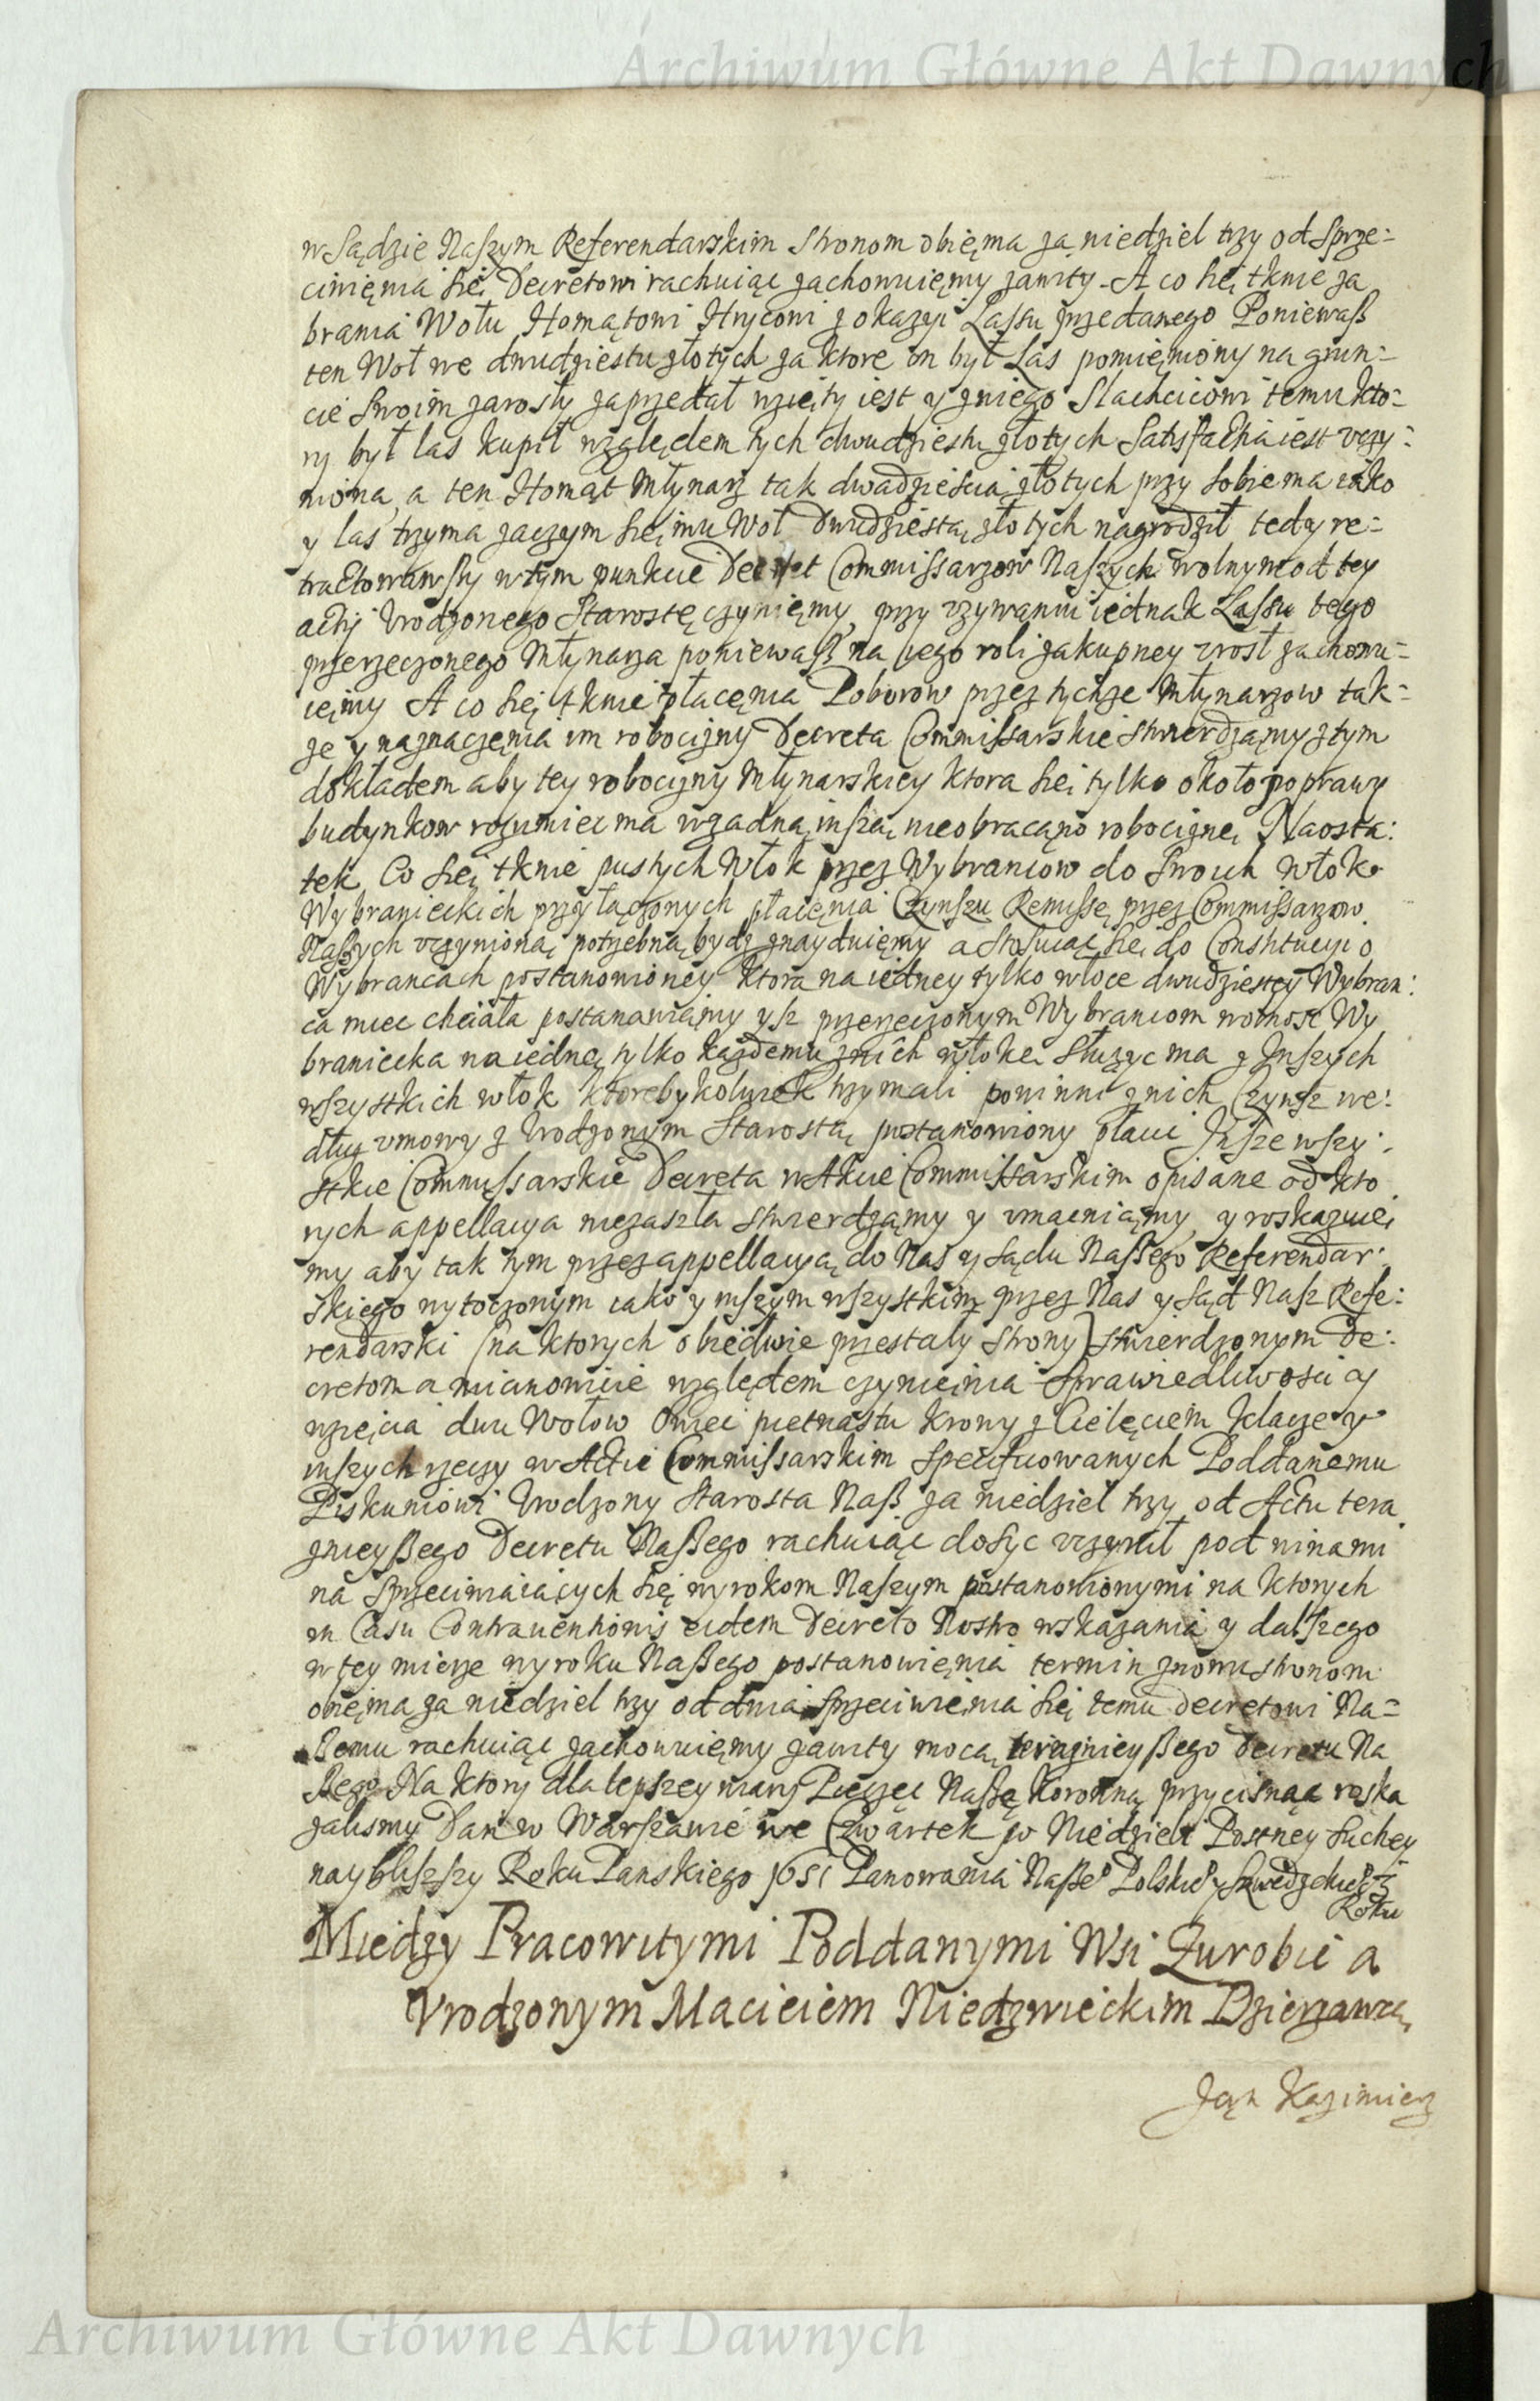 Archiwum Główne Akt Dawnych
w Sądzie Naszym Referendarskim stronom obięma za niedziel trzy od sprze=
ciwięnia się Decretowi rachuiąc zachowuięmy zawity. A co się tknie za
brania Wołu Homątowi Hryconi z okazyi Lassu przedanego Poniewaß
ten Woł we dwudziestu złotych za ktore on był Las pomięniony na grun=
cie swoim zarosły zaprzedał wzięty iest y z niego Slachcicowi temu kto=
ry był las kupił względem tych dwudziestu złotych Satisfactia iest uczy:
niona, a ten Homąt Młynarz tak dwadzieścia złotych przy sobie ma iako
y las trzyma zaczym się mu Woł dwudziestą złotych nagrodził tedy re=
tractowawszy w tym punkcie Decret Commissarzow Naszych wolnym od tey
actij Urodzonego Starostę czynięmy, przy uzywaniu iednak Lassu tego
przerzeczonego Młynarza poniewaß na iego roli zakupney urosł zachowu=
ięmy A co się tknie płacęnia Poborow przez tychze Młynarzow tak=
ze y naznaczęnia im robocizny Decreta Commissarskie stwierdzamy z tym
dokładem aby tey robocizny Młynarskiey ktora się tylko około poprawy
budynkow rozumiec ma w zadną inszą nie obracano robociznę, Naosta:
tek Co się tknie pustych Włok przez Wybrancow do swoich włok
Wybranieckich przyłączonych płacęnia Czynszu Remissę przez Commissarzow
Naszych uczynioną potrzebną bydz znayduięmy a stosuiąc się do Constitucyi o
Wybrancach postanowioney ktora na iedney tylko włoce dwudziestey Wybran:
ca miec chciała postanawiamy ysz przerzeczonym Wybrancom wolnosc Wy
braniecka na iednę tylko kazdemu z nich włokę słuzyc ma z Inszych
wszystkich włok ktorebykolwiek trzymali powinni z nich Czynsz we:
dług umowy z Urodzonym Starostą postanowiony płacic Insze wszy:
stkie Commissarskie Decreta w Akcie Commissarskim opisane od kto
rych appellacya niezaszła stwierdzamy y umacniamy y roskazuię
my aby tak tym przez appellacyą do Nas y sądu Naßego Referendar:
skiego wytoczonym iako y inszym wszystkim przez Nas y sąd Nasz Refe:
rendarski (na ktorych obiedwie przestały strony) stwierdzonym De:
cretom a mianowicie względem czynięnia sprawiedliwosci y
wzięcia dwu Wołow Owiec pietnastu Krowy z Cielęciem Klaczey
inszych rzeczy w Actie Commissarskim specificowanych Poddanemu
Piskuniowi Urodzony Starosta Naß za niedziel trzy od Actu tera
znieyßego Decretu Naßego rachuiąc dosyc uczynił pod winami
na sprzeciwiaiących się wyrokom Naszym postanowionymi na ktorych
in Casu Contraventionis eidem Decreto Nostro wskazania y dalszego
w tey mierze wyroku Naßego postanowięnia termin znowu stronom
obięma za niedziel trzy od dnia sprzeciwięnia się temu decretowi Na=
ßemu rachuiąc zachowuięmy zawity mocą teraznieyßego Decretu Na
ßego Na ktory dla lepszey wiary Pieczęc Naßę Koronną przycisnąc roska
zalismy Dan w Warszawie we Czwartek po Niedzieli Postney Suchey
naybliszszy Roku Panskiego 1651 Panowania Naße° Polskie° y Szwedzkie° 3
Roku
Miedzy Pracowitymi Poddanymi Wsi Zurobic a
Urodzonym Macieiem Niedzwieckim Dzierzawcą
Jan Kazimierz
Archiwum Główne Akt Dawnych